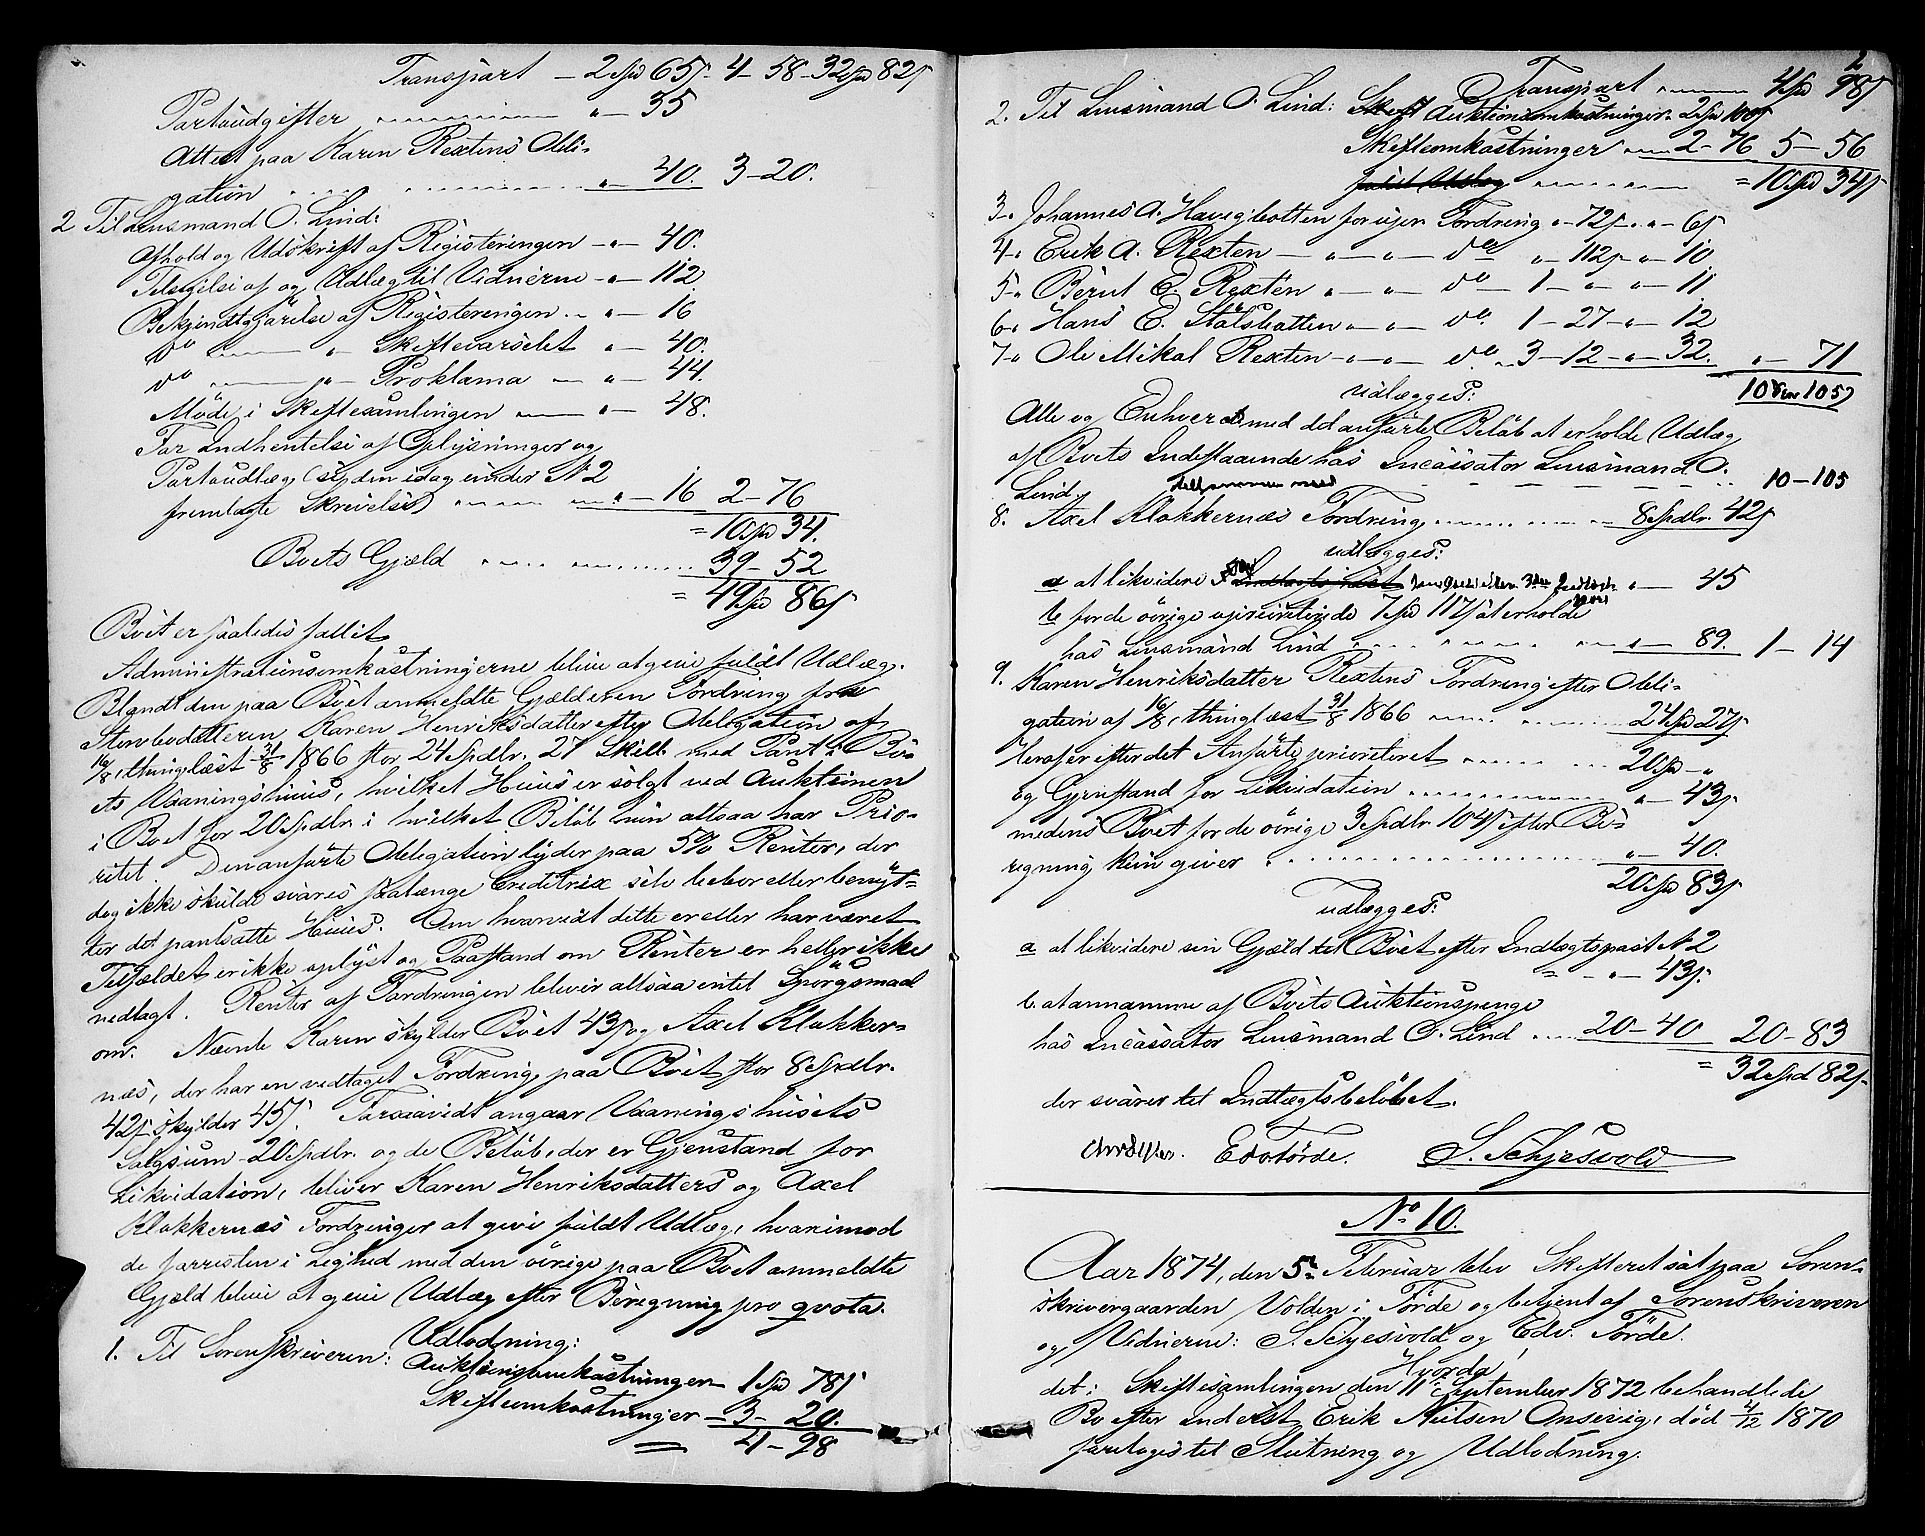 Transport – 2 Spd 65 s. 4 – 58 – 32 Spd 82 s
Portoudgifter „ – 35
Attest paa Karen Rextens Obli-
gation „ – 40. 3 – 20.
2 Til Lensmand O. Lind:
Afhold og Udskrift af Registeringen – „ – 40.
Tilsigelse af og Udlæg til Vidnerne – „ – 112
Bekjendtgjørelse af Registeringen „ – 16
do „ Skiftevarselet „ – 40.
do „ – Proklama – „ – 44.
Møde i Skiftesamlingen „ – 48.
For Indhentelse af Oplysninger og
Portoudlæg (se den idag under N 2
fremlagte Skrivelse) „ – 16 2 – 76
= 10 Spd 34.
Boets Gjæld 39 – 52
= 49 Spd 86 s
Boet er saaledes fallit
Administrationsomkostningerne blive at give fuldt Udlæg.
Blandt den paa Boet anmeldte Gjæld er en Fordring fra
Stervbodatteren Karen Henriksdatter efter Obligation af
16/8, thinglæst 31/8 1866 stor 24 Spdlr. 27 Skill. med Pant i Bo-
ets Vaaningshuus, hvilket Huus er solgt ved Auktionen
i Boet for 20 Spdlr. i hvilket Beløb hun altsaa har Prio-
ritet. Den anførte Obligation lyder paa 5% Renter, der
dog ikke skulde svares saalænge Creditrix selv bebor eller benyt-
ter det pantsatte Huus. Om hvorvidt dette er eller har været
Tilfældet er ikke oplyst og Paastand om Renter er heller ikke
nedlagt. Renter af Fordringen bliver altsaa intet Spørgsmaal
om. Nævnte Karen skylder Boet 43 s og Axel Klokker-
næs, der har en vedtaget Fordring paa Boet stor 8 Spdlr.
42 s skylder 45 s. Forsaavidt angaar Vaaningshusets
Salgsum – 20 Spdlr. og de Beløb, der er Gjenstand for
Likvidation, bliver Karen Henriksdatters og Axel
Klokkernæs Fordringer at give fuldt Udlæg, hvorimod
de forresten i Lighed med den øvrige paa Boet anmeldte
Gjæld blive at give Udlæg efter Beregning pro qvota.
Udlodning:
1. Til Sorenskriveren: Auktionsomkostninger – 1 Spd 78 s
Skifteomkostninger – 3 – 20.
= 4 – 98
2
Transport 4 Spd 98 s
2. Til Lensmand O. Lind: Auktionsomkostninger 2 Spd 100 s
Skifteomkostninger 2 – 76 5 – 56
= 10 Spd 34 s
3. Johannes A. Havigbotten for ujør. Fordring „ – 72 s „ – 6 s
4. Erik A. Rexten – „ – „ – do „ 112 s „ – 10
5. Bernt E. Rexten „ – „ – do – 1 – „ „ – 11
6. Hans E. Stålsbotten „ – „ – do. 1 – 27 – „ – 12
7. Ole Mikal Rexten – „ – „ – do. – 3 – 12 – „ – 32. „ – 71
10 Spd 105
udlægges:
Alle og Enhver med det anførte Beløb at erholde Udlæg
af Boets Indestaaende hos Incassator Lensmand O.
Lind, tilsammen med 10 – 105
8. Axel Klokkernæs Fordring 8 Spdlr. 42 s
udlægges:
a at likvidere „ – 45
b for de øvrige uprioriterede 7 Spd 117 s at erholde
hos Lensmand Lind „ – 89. 1 – 14
9. Karen Henriksdatter Rextens Fordring efter Obli-
gation af 16/8, thinglæst 31/8 1866 24 Spd 27 s
Heraf er efter det Anførte prioriteret 20 Spd – „
og Gjenstand for Likvidation „ – 43 s.
medens Boet for de øvrige 3 Spdlr 104 s efter Be-
regning kun giver „ – 40.
20 Spd 83 s
udlægges:
a at likvidere sin Gjæld til Boet efter Indtægtspost N 2
= – „ – 43 s.
b. at annamme af Boets Auktionspenge
hos Incassator Lensmand O. Lind 20 – 40 20 – 83
= 32 Spd 82 s.
der svarer til Indtægtsbeløbet.
Edv Førde. S. Schjesvold
No 10.
Aar 1874, den 5te Februar blev Skifteret sat paa Soren-
skrivergaarden Volden i Førde og betjent af Sorenskriveren
og Vidnerne: S. Schjesvold og Edv. Førde.
Hvorda!
det i Skiftesamlingen den 11te September 1872 behandlede
Bo efter Inderst Erik Neilsen Ansevig, død 4/12 1870
foretoges til Slutning og Udlodning.